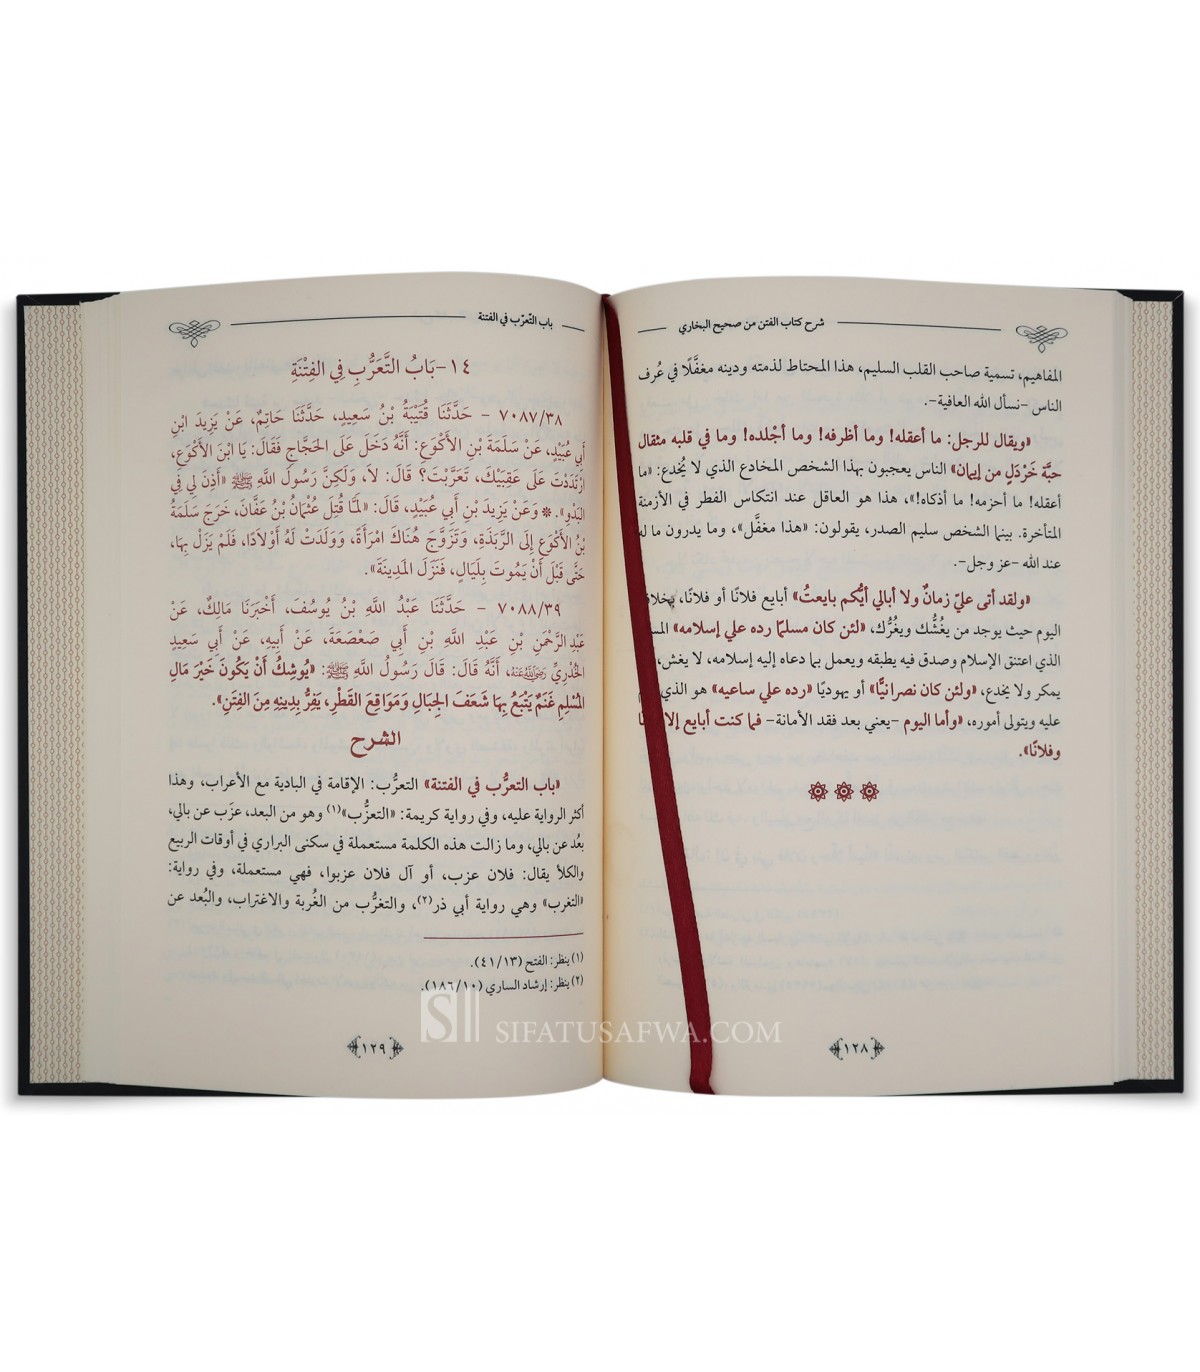 شرح كتاب الفتن من صحيح البخاري
المفاهيم، تسمية صاحب القلب السليم، هذا المحتاط لذمته ودينه مغفَّلًا في عُرف
الناس -نسأل الله العافية-.
«ويقال للرجل: ما أعقله! وما أظرفه! وما أجْلده! وما في قلبه مثقال
حبَّة خَرْدَلٍ من إيمان» الناس يعجبون بهذا الشخص المخادع الذي لا يُخدع: «ما
أعقله! ما أحزمه! ما أذكاه!»، هذا هو العاقل عند انتكاس الفطر في الأزمنة
المتأخرة. بينما الشخص سليم الصدر، يقولون: «هذا مغفَّل»، وما يدرون ما له
عند الله -عز وجل-.
«ولقد أتى عليّ زمانٌ ولا أبالي أيُّكم بايعتُ» أبايع فلانًا أو فلانًا، بخلاف
اليوم حيث يوجد من يغُشُّك ويغُرُّك، «لئن كان مسلمًا رده علي إسلامه»
الذي اعتنق الإسلام وصدق فيه يطبقه ويعمل بما دعاه إليه إسلامه، لا يغش،
يمكر ولا يخدع، «ولئن كان نصرانيًّا» أو يهوديًا «رده علي ساعيه» هو الذي
عليه ويتولى أموره، «وأما اليوم -يعني بعد فقد الأمانة- فما كنت أبايع إلا
وفلانًا».
١٢٨
باب التّعرّب في الفتنة
١٤- بَابُ التَّعَرُّبِ فِي الفِتْنَةِ
٧٠٨٧/٣٨ - حَدَّثَنَا قُتَيْبَةُ بْنُ سَعِيدٍ، حَدَّثَنَا حَاتِمٌ، عَنْ يَزِيدَ ابْنِ
أَبِي عُبَيْدٍ، عَنْ سَلَمَةَ بْنِ الأَكْوَعِ: أَنَّهُ دَخَلَ عَلَى الحَجَّاجِ فَقَالَ: يَا ابْنَ الأَكْوَعِ،
ارْتَدَدْتَ عَلَى عَقِبَيْكَ، تَعَرَّبْتَ؟ قَالَ: لَا، وَلَكِنَّ رَسُولَ اللَّهِ ﷺ «أَذِنَ لِي فِي
البَدْوِ». * وَعَنْ يَزِيدَ بْنِ أَبِي عُبَيْدٍ، قَالَ: «لَمَّا قُتِلَ عُثْمَانُ بْنُ عَفَّانَ، خَرَجَ سَلَمَةُ
بْنُ الأَكْوَعِ إِلَى الرَّبَذَةِ، وَتَزَوَّجَ هُنَاكَ امْرَأَةً، وَوَلَدَتْ لَهُ أَوْلَادًا، فَلَمْ يَزَلْ بِهَا،
حَتَّى قَبْلَ أَنْ يَمُوتَ بِلَيَالٍ، فَنَزَلَ المَدِينَةَ».
٧٠٨٨/٣٩ - حَدَّثَنَا عَبْدُ اللَّهِ بْنُ يُوسُفَ، أَخْبَرَنَا مَالِكٌ، عَنْ
عَبْدِ الرَّحْمَنِ بْنِ عَبْدِ اللَّهِ بْنِ أَبِي صَعْصَعَةَ، عَنْ أَبِيهِ، عَنْ أَبِي سَعِيدٍ
الخُدْرِيِّ رَضِيَ اللَّهُ عَنْهُ، أَنَّهُ قَالَ: قَالَ رَسُولُ اللَّهِ ﷺ: «يُوشِكُ أَنْ يَكُونَ خَيْرَ مَالِ
المُسْلِمِ غَنَمٌ يَتْبَعُ بِهَا شَعَفَ الجِبَالِ وَمَوَاقِعَ القَطْرِ، يَفِرُّ بِدِينِهِ مِنَ الفِتَنِ».
الشرح
«باب التعرُّب في الفتنة» التعرُّب: الإقامة في البادية مع الأعراب، وهذا
أكثر الرواية عليه، وفي رواية كريمة: «التعزُّب»(١) وهو من البعد، عزَب عن بالي،
بعُد عن بالي، وما زالت هذه الكلمة مستعملة في سكنى البراري في أوقات الربيع
والكلأ يقال: فلان عزب، أو آل فلان عزبوا، فهي مستعملة، وفي رواية:
«التغرب» وهي رواية أبي ذر(٢)، والتغرُّب من الغُربة والاغتراب، والبُعد عن
(١) ينظر: الفتح (٤١/١٣).
(٢) ينظر: إرشاد الساري (١٨٦/١٠).
١٢٩
SIFATUSAFWA.COM